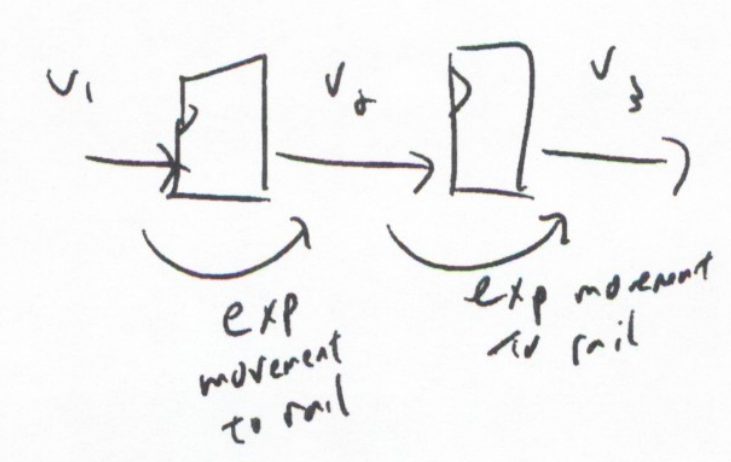 V1
V2
V3
exp
movement
to rail
exp movement
to rail